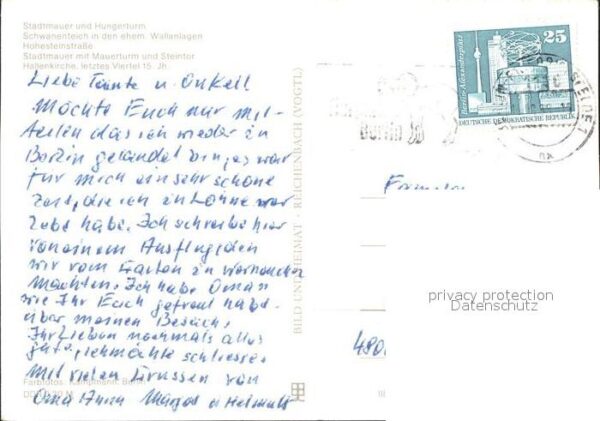 Stadtmauer und Hungerturm
Schwanenteich in den ehem. Wallanlagen
Hohesteinstraße
Stadtmauer mit Mauerturm und Steintor
Hallenkirche, letztes Viertel 15. Jh.
Liebe Tante u. Onkel
Möchte Euch nur mit-
teilen das ich wieder in
Berlin gelandet bin, es war
für mich ein sehr schöne
Zeit, die ich in Löhne ver
lebt habe. Ich schreibe hier
von einem Ausflug, den
wir vom Garten zu Werneuchen
machten. Ich habe Oma
wie Ihr Euch gefreut habt
über meinen Besuch.
Ihr Lieben nochmals alles
gute, ich möchte schliessen
Mit vielen Grüssen von
Oma Anna Margot u Helmut
Farbfotos: Kampmann, Berlin
BILD UND HEIMAT · REICHENBACH (VOGTL)
25
Berlin-Alexanderplatz
DEUTSCHE DEMOKRATISCHE REPUBLIK
Berlin
na
privacy protection
Datenschutz